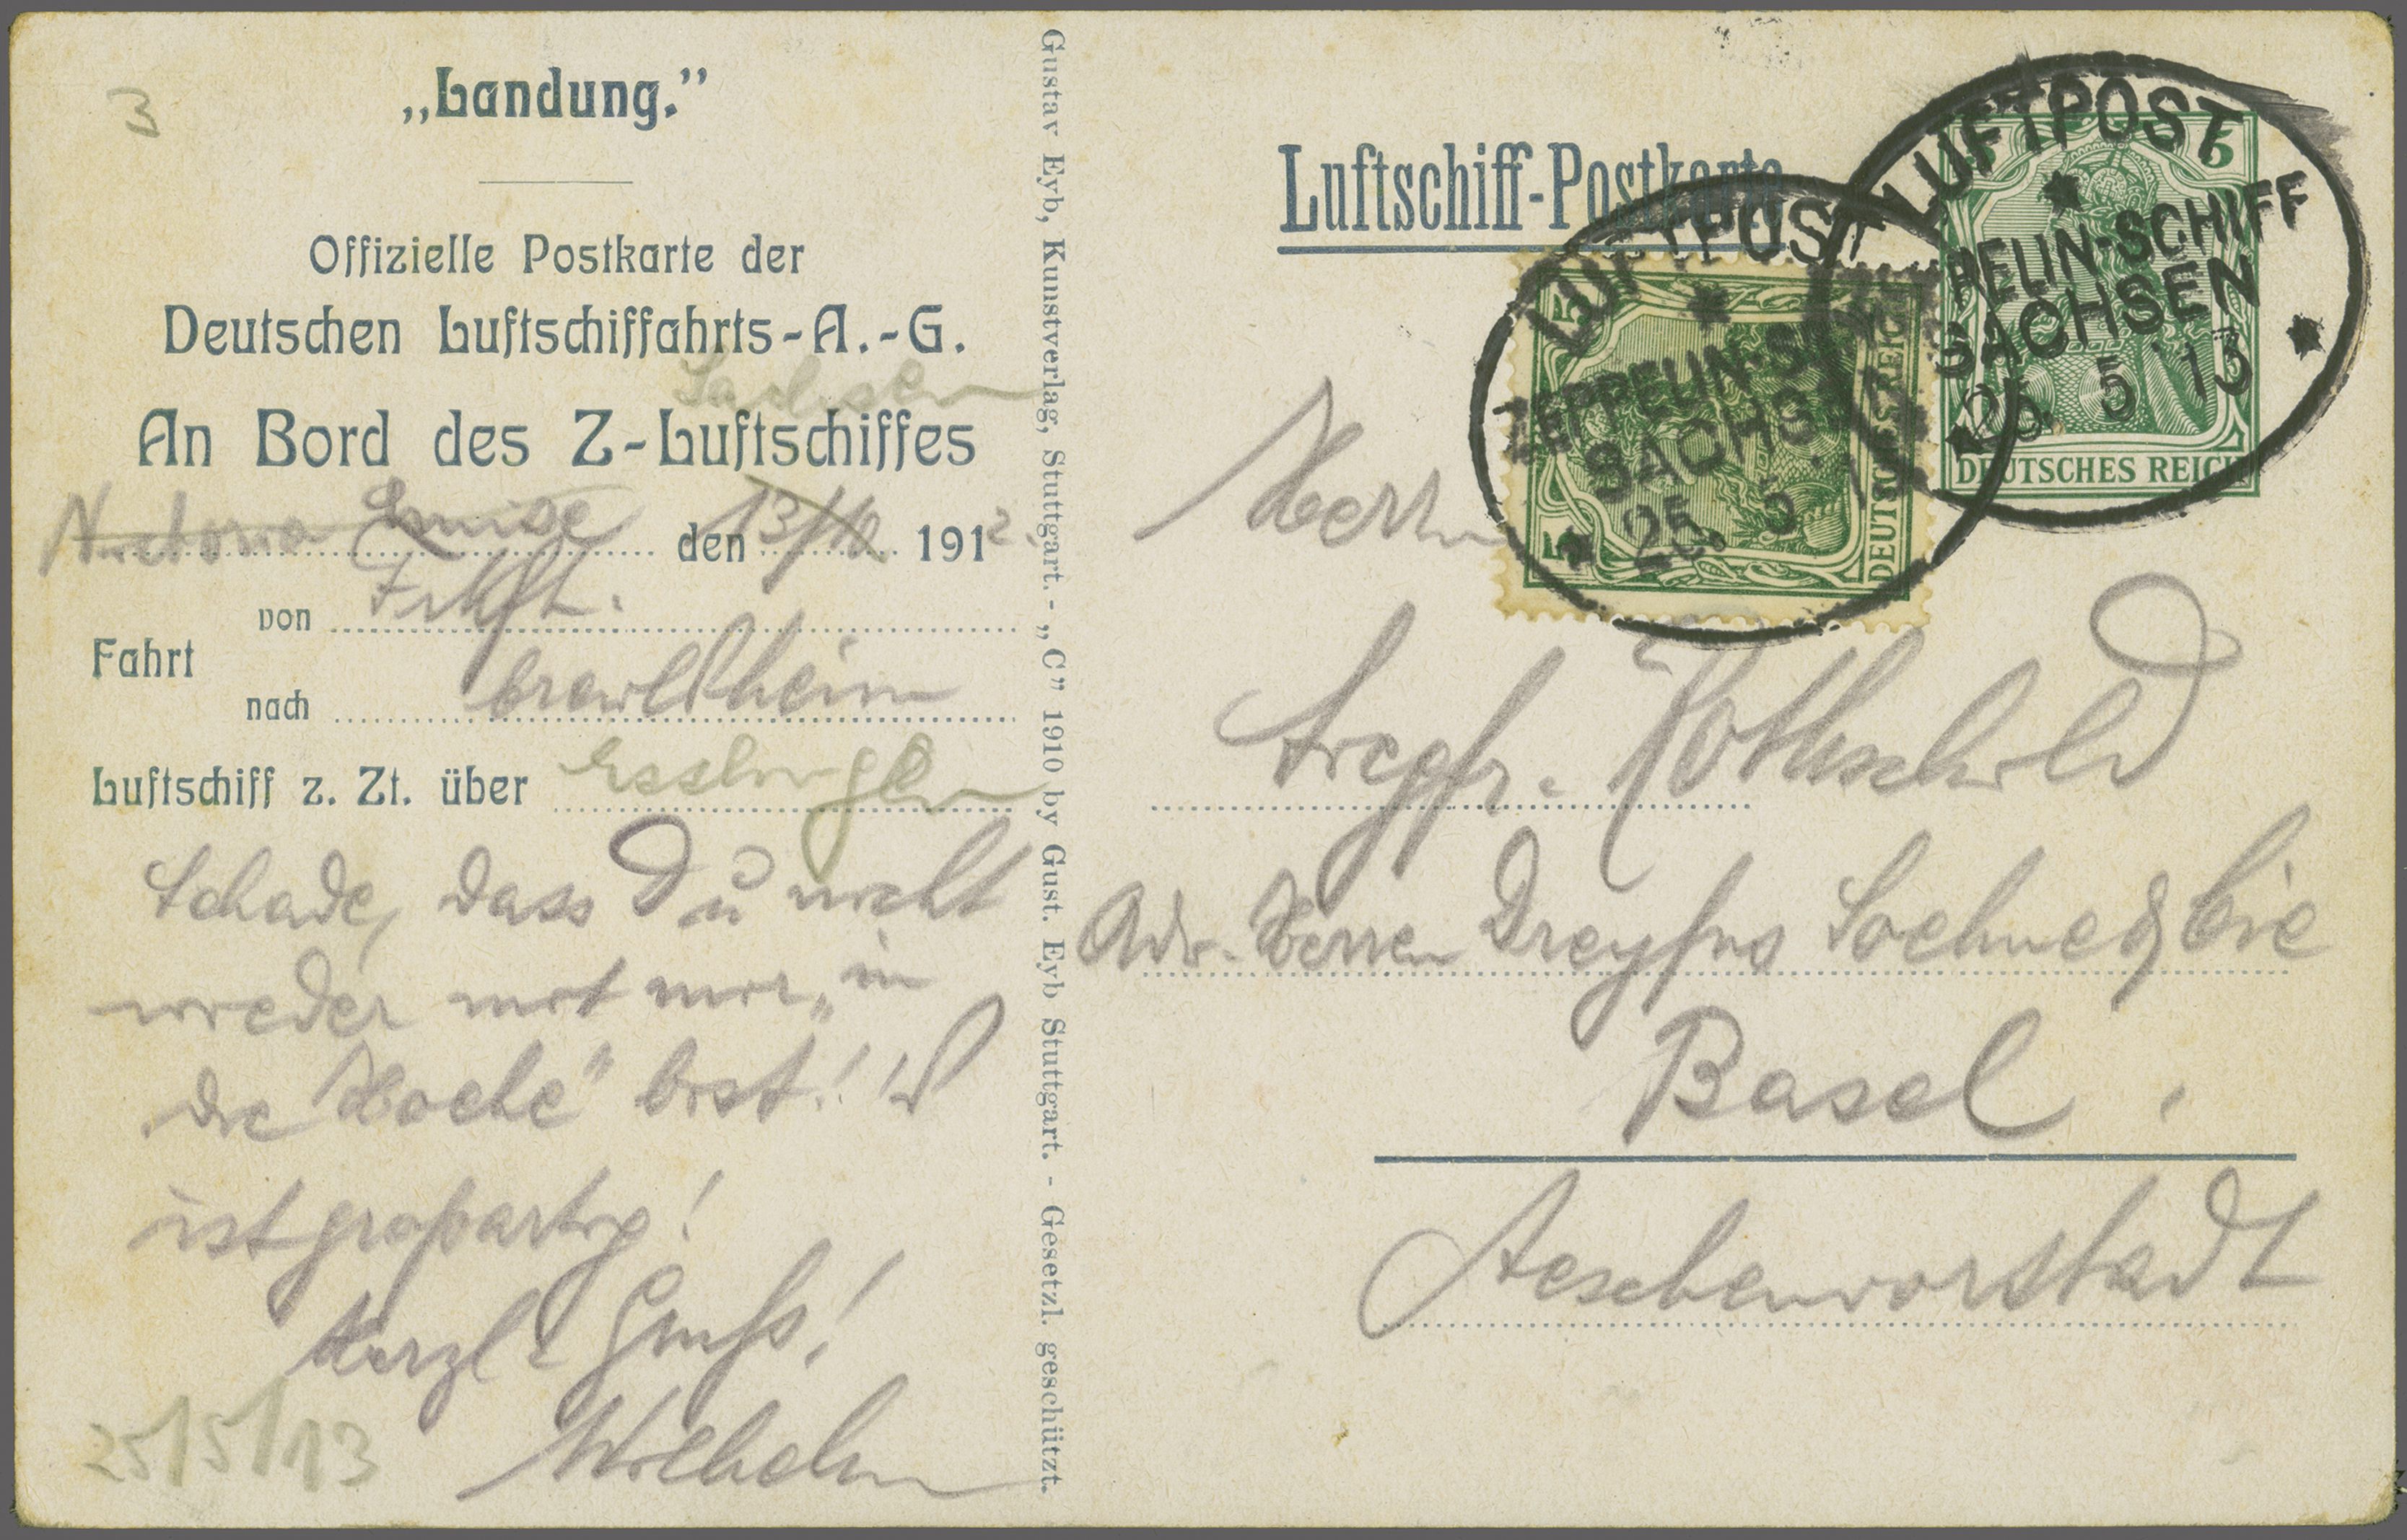 3
„Landung.”
Offizielle Postkarte der
Deutschen Luftschiffahrts-A.-G.
Sachsen
An Bord des Z-Luftschiffes
Luise den 13/10 1912.
Fahrt
von Frkft.
nach
Luftschiff z. Zt. über Esslingen
Schade, dass Du nicht
wieder mit mir „in
die Hoehe” bist!
ist großartig!
Herzl. Gruß!
Wilhelm
25/5/13
Gustav Eyb, Kunstverlag, Stuttgart. - „C” 1910 by Gust. Eyb Stuttgart. - Gesetzl. geschützt.
Luftschiff-Postkarte
LUFTPOST
ZEPPELIN-SCHIFF
SACHSEN
25. 5. 13
5
DEUTSCHES REICH
LUFTPOST
ZEPPELIN-SCHIFF
SACHSEN
25. 5.
5
DEUTSCHES REICH
Herrn
Siegfr. Rothschild
Adr. Herren Dreyfus Soehne & Cie
Basel.
Aeschenvorstadt